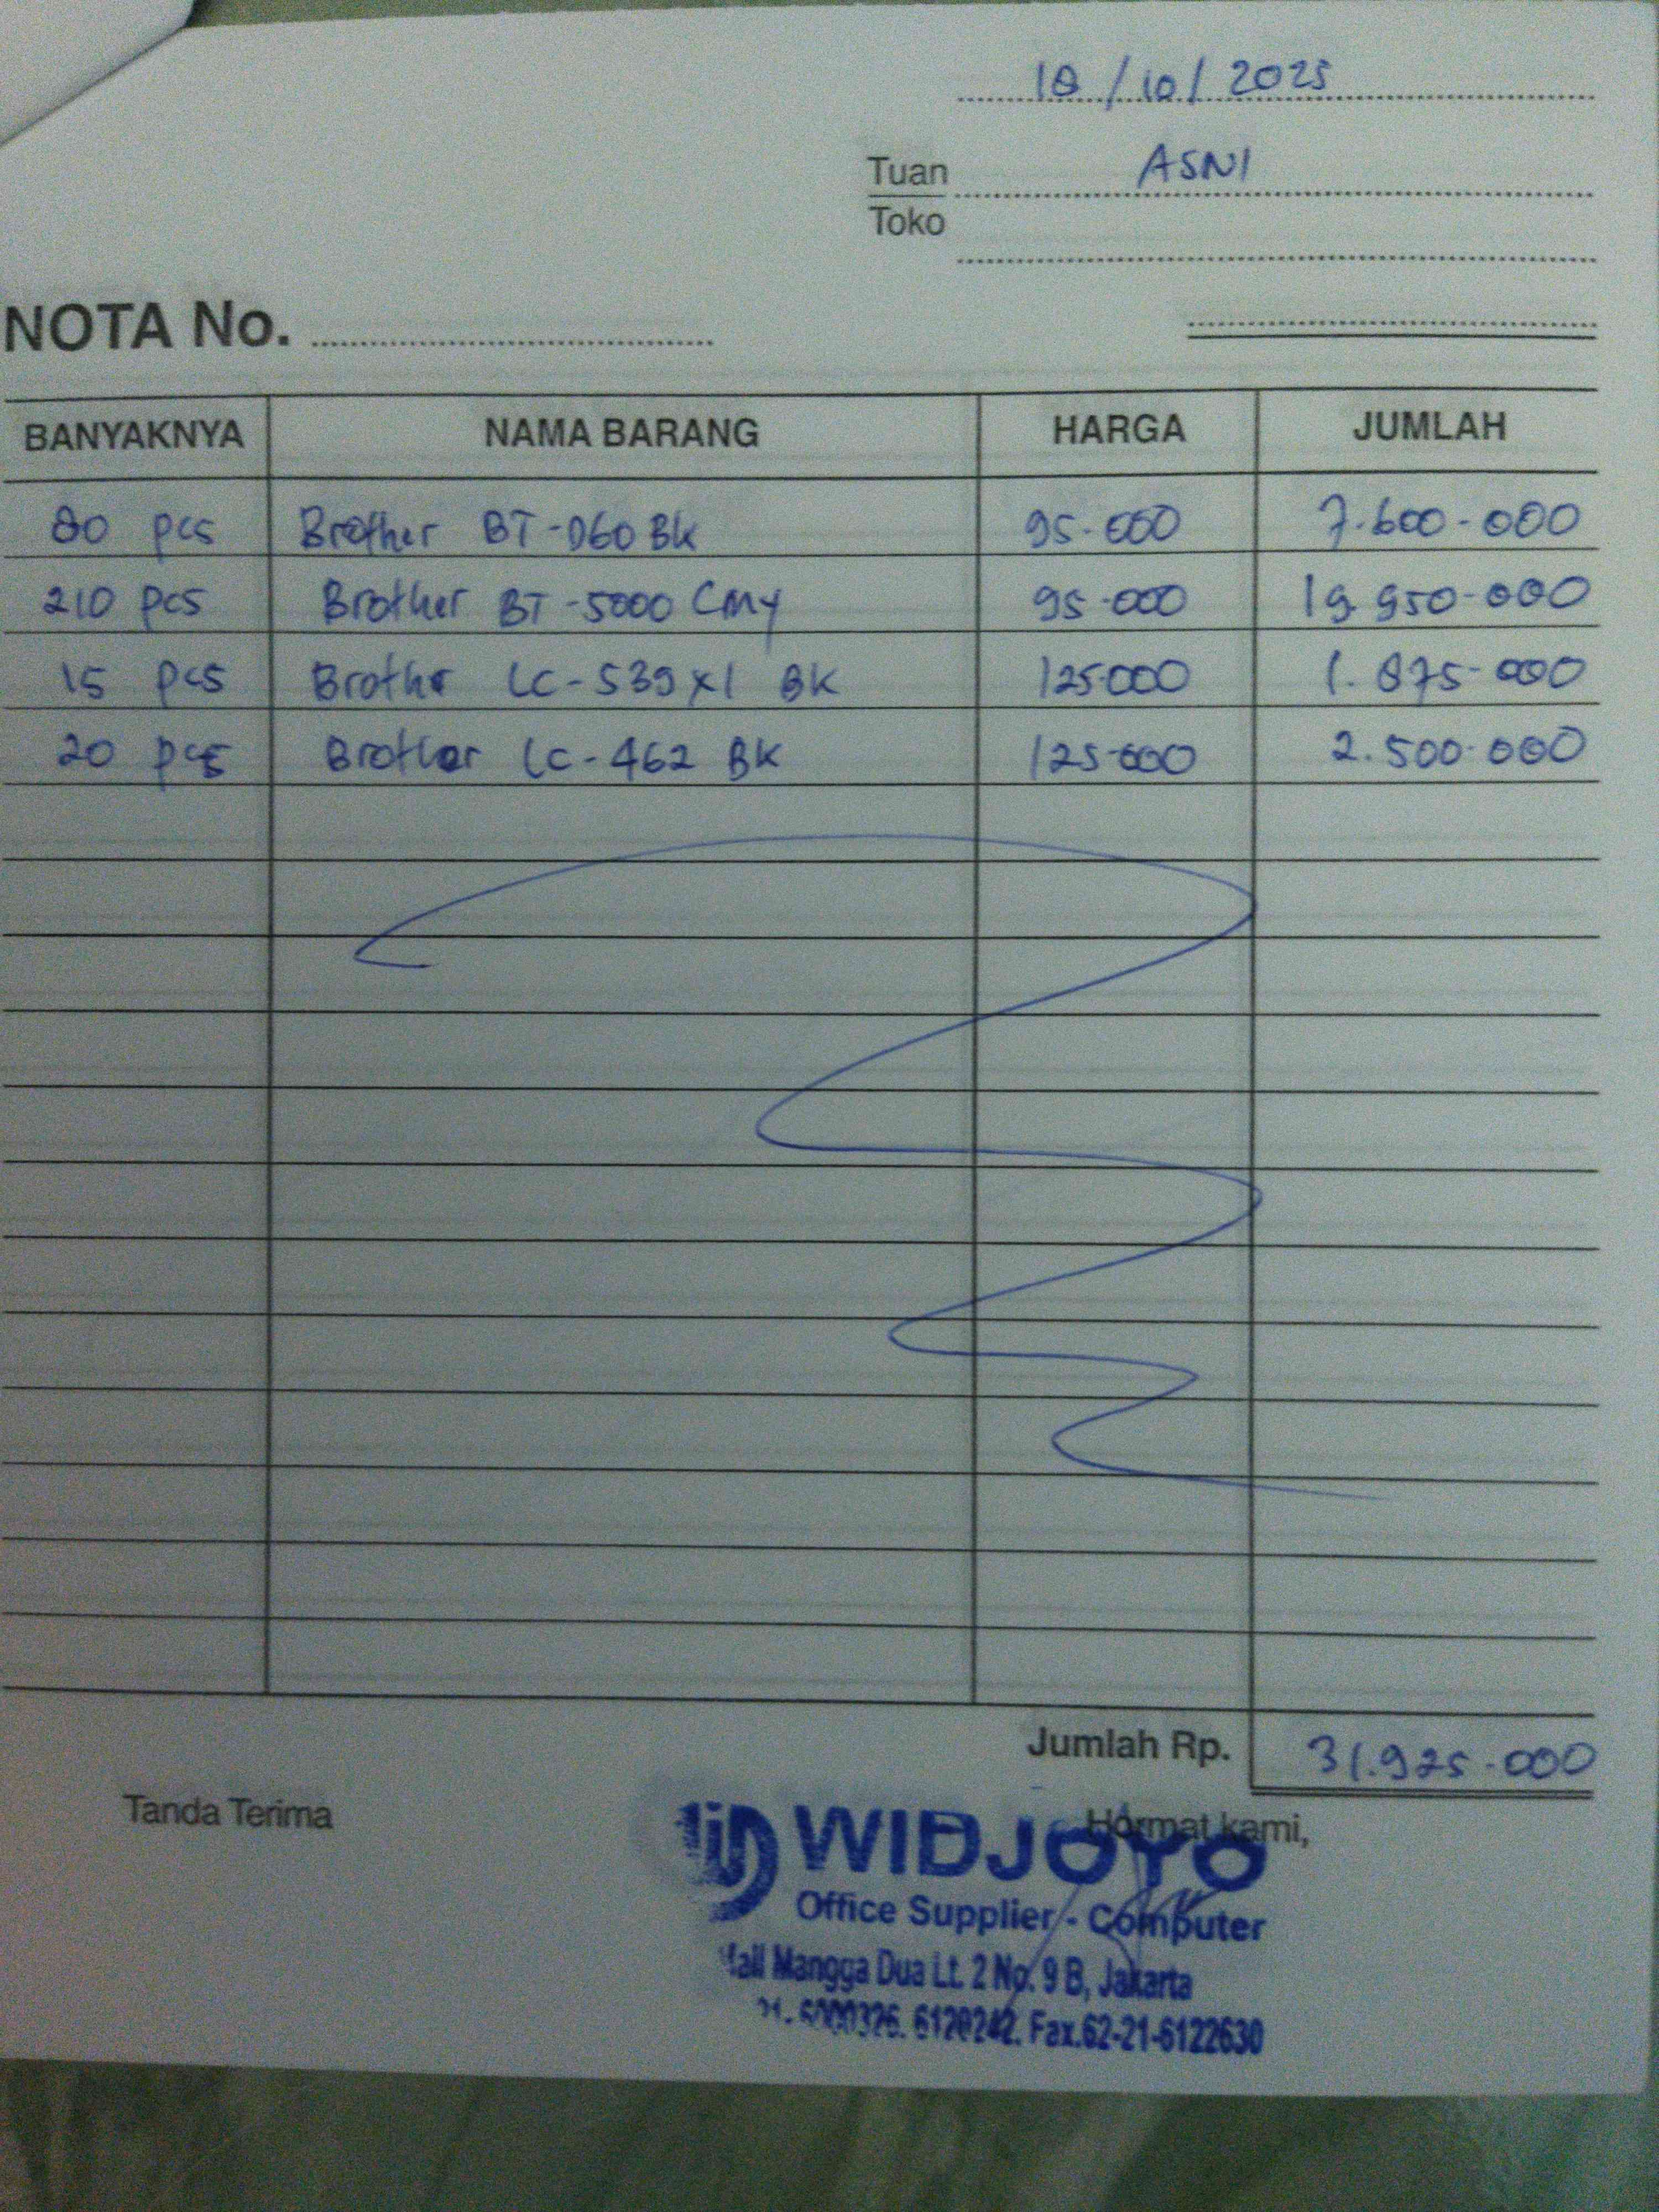 18/10/2025
Tuan ASNI
Toko
NOTA No.
BANYAKNYA NAMA BARANG HARGA JUMLAH
80 pcs Brother BT-D60 BK 95.000 7.600.000
210 pcs Brother BT-5000 CMY 95.000 19.950.000
15 pcs Brother LC-539 XL BK 125.000 1.875.000
20 pcs Brother LC-462 BK 125.000 2.500.000
Jumlah Rp. 31.925.000
Tanda Terima Hormat kami,
WIDJOYO
Office Supplier - Computer
Mall Mangga Dua Lt. 2 No. 9 B, Jakarta
Fax.62-21-6122630